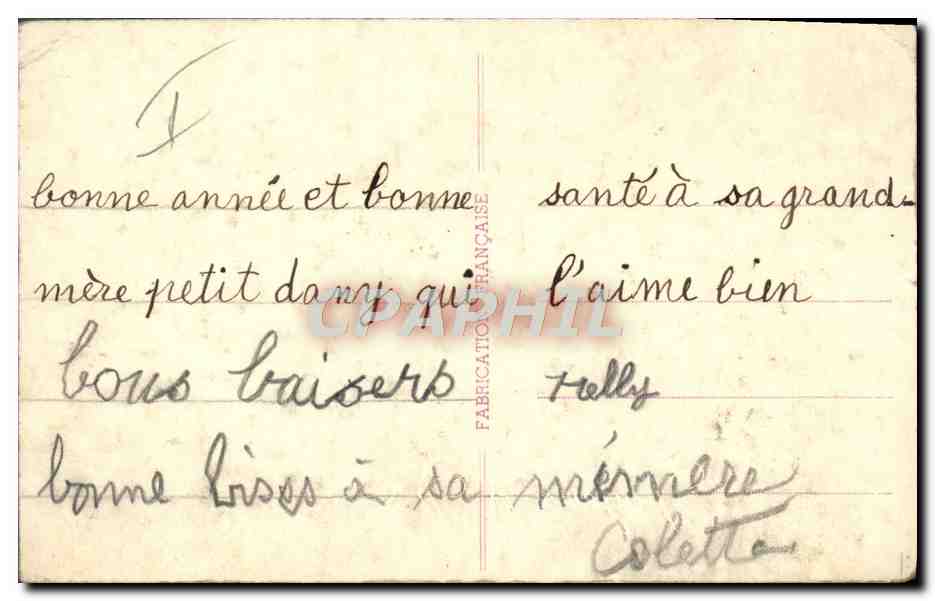 bonne année et bonne santé à sa grand-
mère petit dany qui l'aime bien
bous baisers nelly
bonne bises à sa mémère
Colette
FABRICATION FRANÇAISE
CPAPHIL